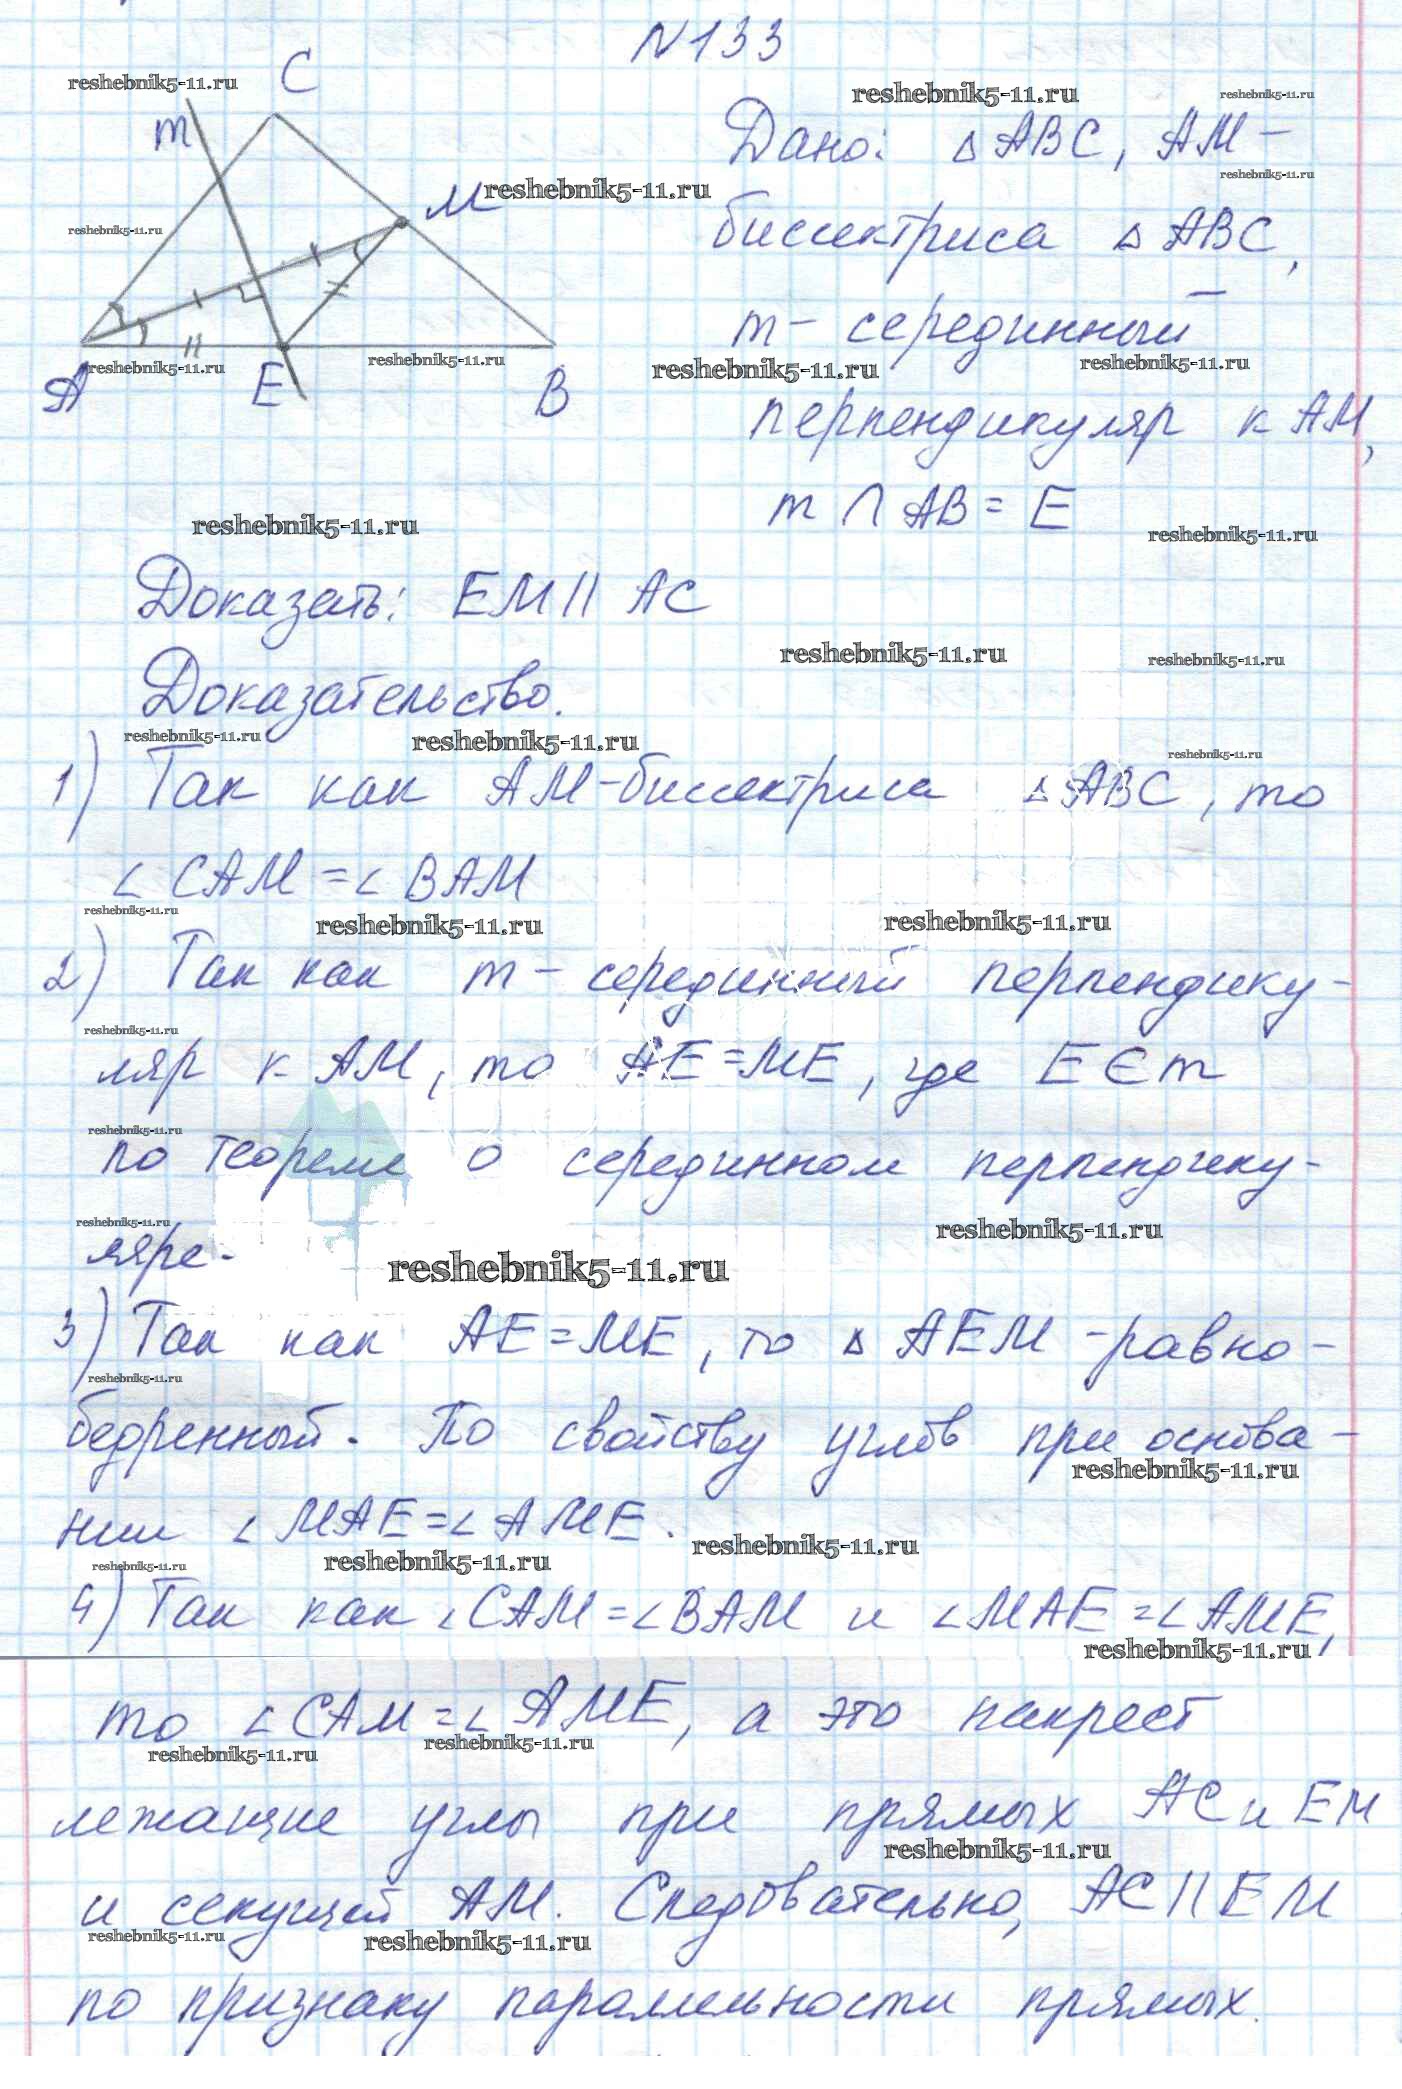 N133
C
m
M
A
E
B
Дано: △ABC, AM –
биссектриса △ABC,
m – серединный
перпендикуляр к AM,
m ∩ AB = E
Доказать: EM || AC
Доказательство.
1) Так как AM – биссектриса △ABC, то
∠CAM = ∠BAM
2) Так как m – серединный перпендику-
ляр к AM, то AE = ME, где E ∈ m
по теореме о серединном перпендику-
ляре.
3) Так как AE = ME, то △AEM – равно-
бедренный. По свойству углов при основа-
нии ∠MAE = ∠AME.
4) Так как ∠CAM = ∠BAM и ∠MAE = ∠AME,
то ∠CAM = ∠AME, а это накрест
лежащие углы при прямых AC и EM
и секущей AM. Следовательно, AC || EM
по признаку параллельности прямых.
reshebnik5-11.ru